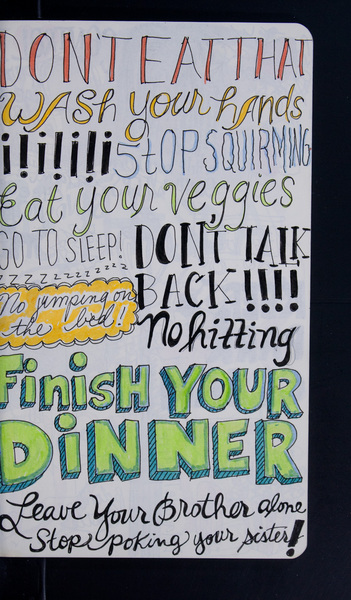 DON'T EAT THAT
WASH your hands
¡!¡!¡!¡! STOP SQUIRMING
Eat your veggies
GO TO SLEEP!
zzzzzzzzzzzzz
No jumping on
the bed!
DON'T TALK
BACK!!!!
No hitting
FiniSH YOUR
DiNNER
Leave Your Brother alone
Stop poking your sister!